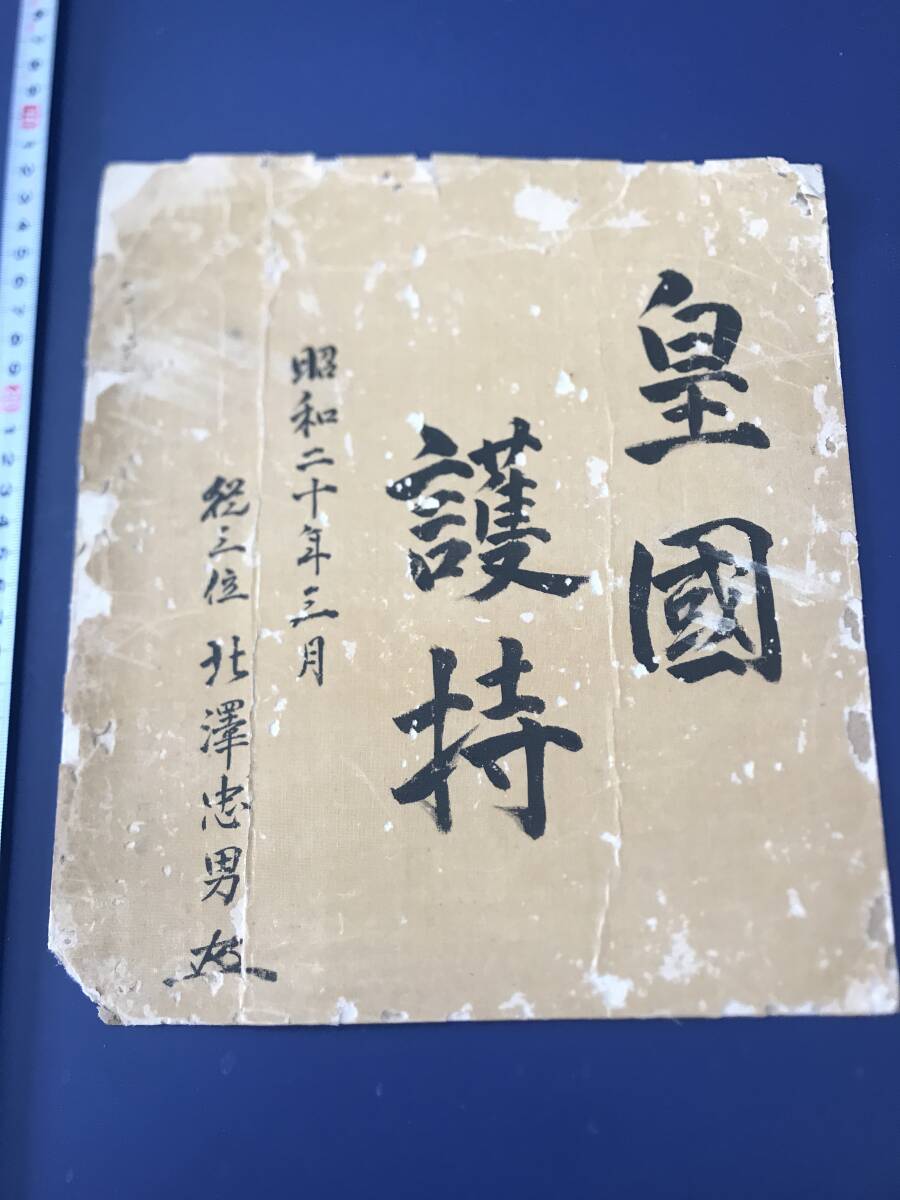 皇國
護持
昭和二十年三月
從三位 北澤忠男